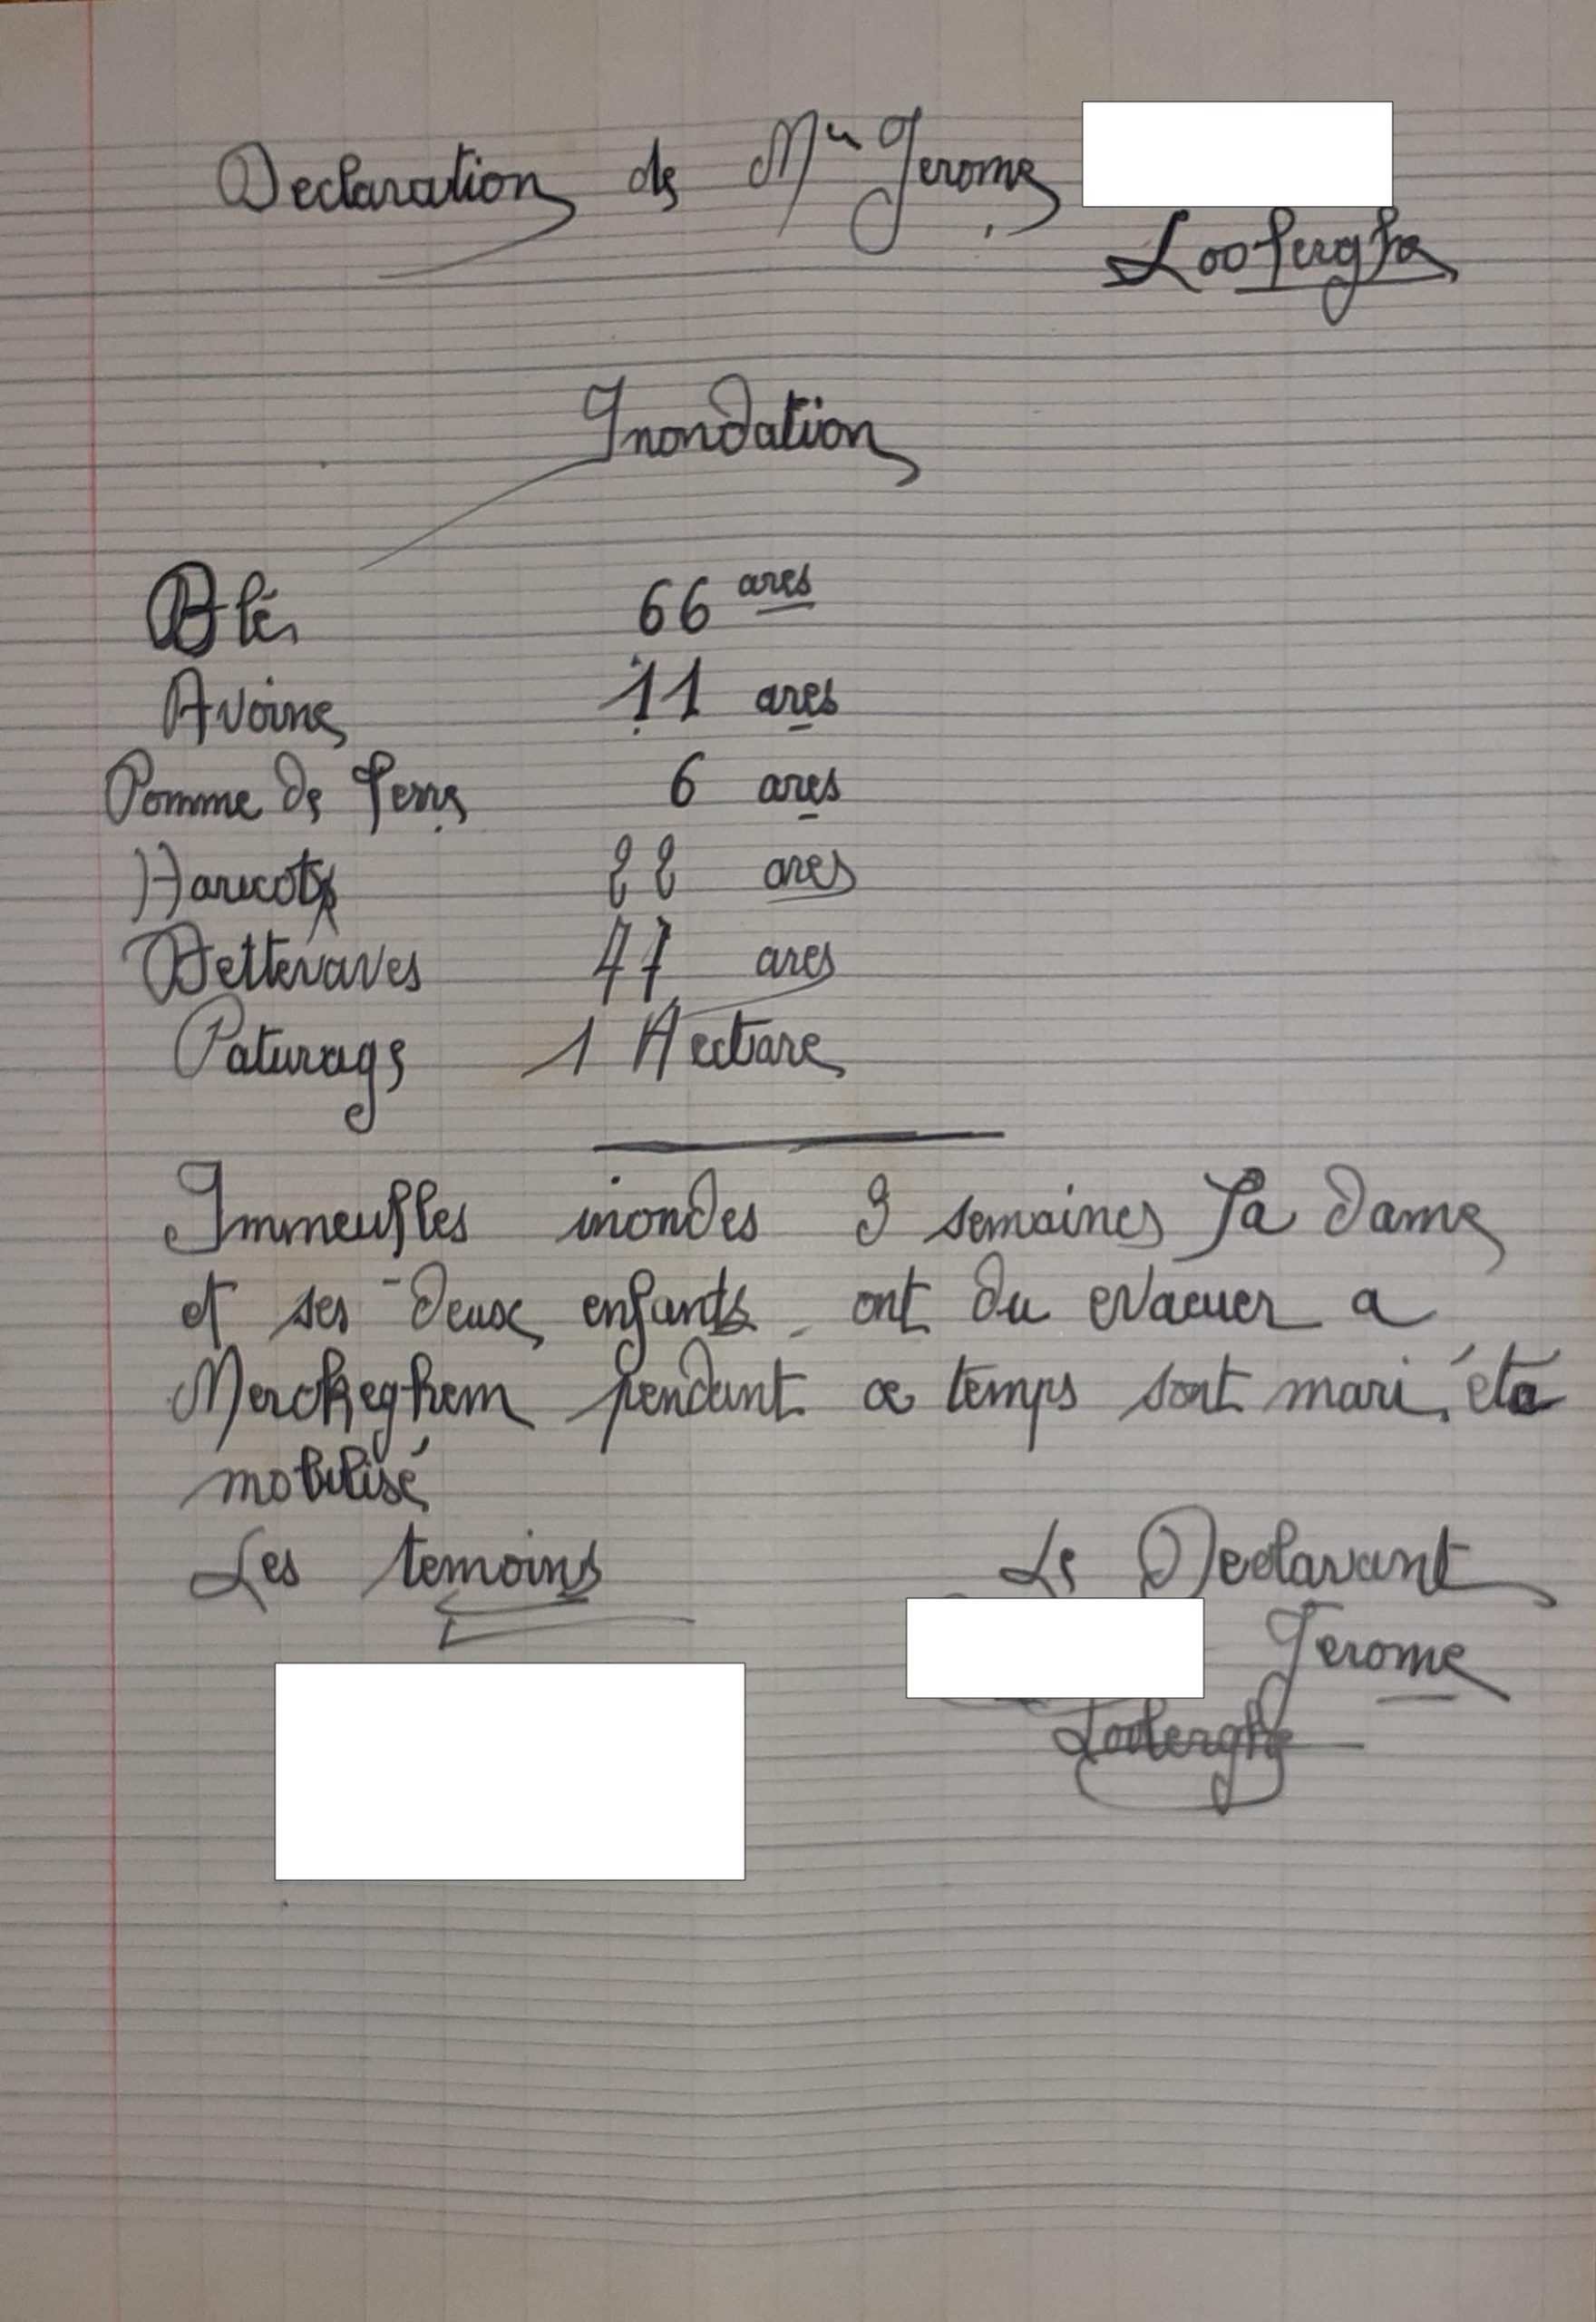 Declaration de Mr Jerome
Looberghe
Inondation
Blé 66 ares
Avoine 11 ares
Pomme de Terre 6 ares
Haricots 22 ares
Betteraves 47 ares
Paturage 1 Hectare
Immeubles inondes 3 semaines Sa dame
et ses deux enfants ont du evacuer a
Merckeghem pendant ce temps sont mari été
mobilisé
Les temoins Le Declarant
Jerome
Looberghe